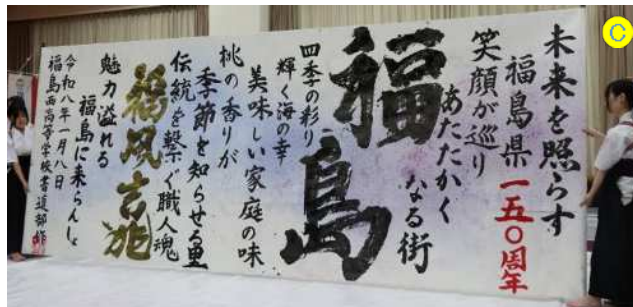 未来を照らす
福島県一五〇周年
笑顔が巡り
あたたかく
なる街
福島
四季の彩り
輝く海の幸
美味しい家庭の味
桃の香りが
季節を知らせる里
伝統を繋ぐ職人魂
福風吉兆
魅力溢れる
福島に来らんしょ
令和八年一月八日
福島西高等学校書道部作
C